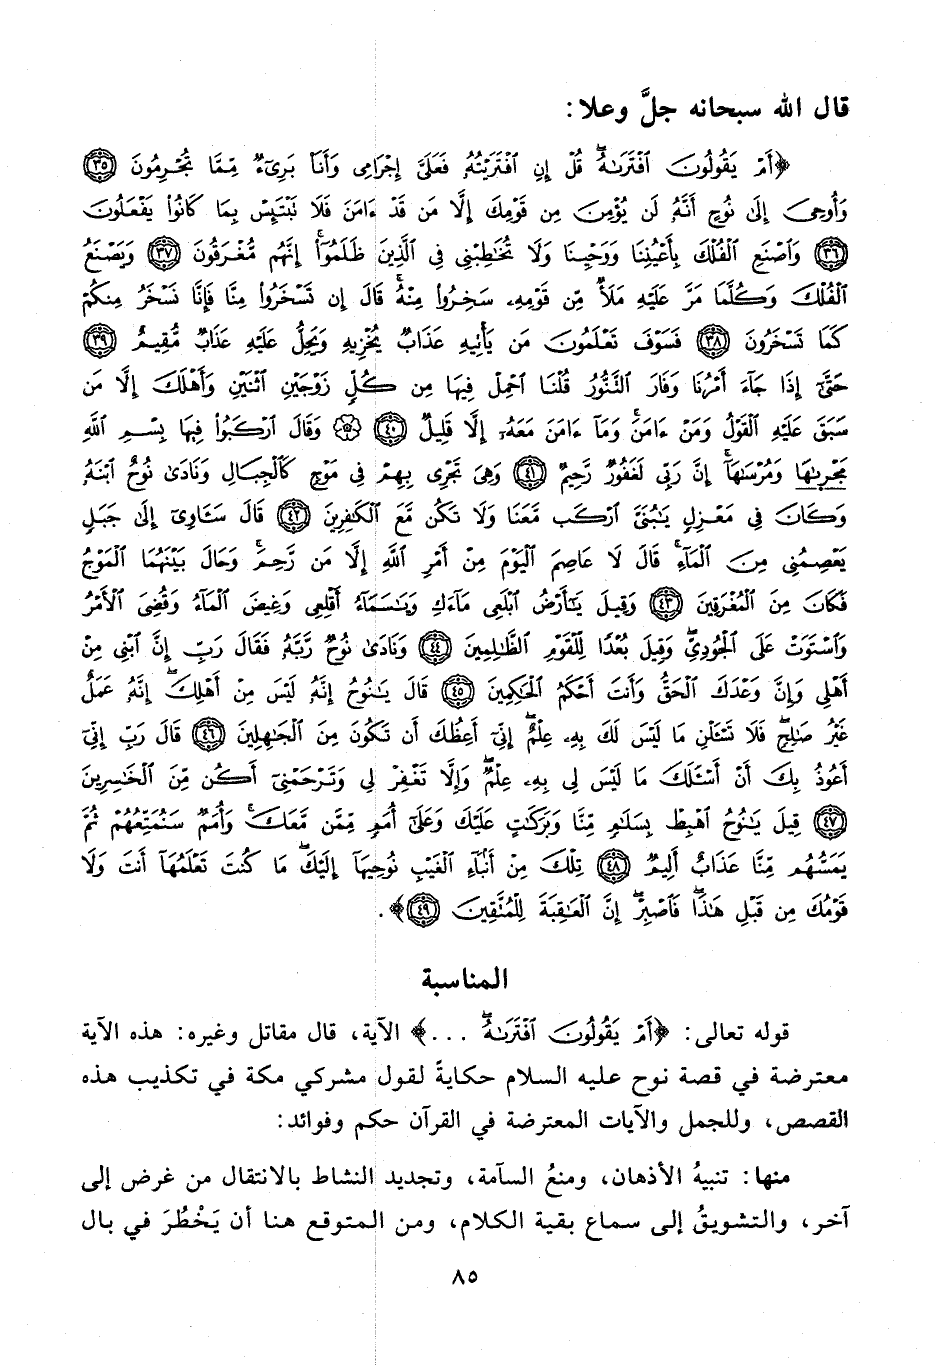 قال الله سبحانه جلَّ وعلا:
﴿أَمْ يَقُولُونَ ٱفْتَرَىٰهُ ۖ قُلْ إِنِ ٱفْتَرَيْتُهُۥ فَعَلَىَّ إِجْرَامِى وَأَنَا۠ بَرِىٓءٌ مِّمَّا تُجْرِمُونَ ٣٥
وَأُوحِىَ إِلَىٰ نُوحٍ أَنَّهُۥ لَن يُؤْمِنَ مِن قَوْمِكَ إِلَّا مَن قَدْ ءَامَنَ فَلَا تَبْتَئِسْ بِمَا كَانُوا۟ يَفْعَلُونَ
٣٦ وَٱصْنَعِ ٱلْفُلْكَ بِأَعْيُنِنَا وَوَحْيِنَا وَلَا تُخَٰطِبْنِى فِى ٱلَّذِينَ ظَلَمُوٓا۟ ۚ إِنَّهُم مُّغْرَقُونَ ٣٧ وَيَصْنَعُ
ٱلْفُلْكَ وَكُلَّمَا مَرَّ عَلَيْهِ مَلَأٌ مِّن قَوْمِهِۦ سَخِرُوا۟ مِنْهُ ۚ قَالَ إِن تَسْخَرُوا۟ مِنَّا فَإِنَّا نَسْخَرُ مِنكُمْ
كَمَا تَسْخَرُونَ ٣٨ فَسَوْفَ تَعْلَمُونَ مَن يَأْتِيهِ عَذَابٌ يُخْزِيهِ وَيَحِلُّ عَلَيْهِ عَذَابٌ مُّقِيمٌ ٣٩
حَتَّىٰٓ إِذَا جَآءَ أَمْرُنَا وَفَارَ ٱلتَّنُّورُ قُلْنَا ٱحْمِلْ فِيهَا مِن كُلٍّ زَوْجَيْنِ ٱثْنَيْنِ وَأَهْلَكَ إِلَّا مَن
سَبَقَ عَلَيْهِ ٱلْقَوْلُ وَمَنْ ءَامَنَ ۚ وَمَآ ءَامَنَ مَعَهُۥٓ إِلَّا قَلِيلٌ ٤٠ ۞ وَقَالَ ٱرْكَبُوا۟ فِيهَا بِسْمِ ٱللَّهِ
مَجْر۪ىٰهَا وَمُرْسَىٰهَآ ۚ إِنَّ رَبِّى لَغَفُورٌ رَّحِيمٌ ٤١ وَهِىَ تَجْرِى بِهِمْ فِى مَوْجٍ كَٱلْجِبَالِ وَنَادَىٰ نُوحٌ ٱبْنَهُۥ
وَكَانَ فِى مَعْزِلٍ يَٰبُنَىَّ ٱرْكَب مَّعَنَا وَلَا تَكُن مَّعَ ٱلْكَٰفِرِينَ ٤٢ قَالَ سَـَٔاوِىٓ إِلَىٰ جَبَلٍ
يَعْصِمُنِى مِنَ ٱلْمَآءِ ۚ قَالَ لَا عَاصِمَ ٱلْيَوْمَ مِنْ أَمْرِ ٱللَّهِ إِلَّا مَن رَّحِمَ ۚ وَحَالَ بَيْنَهُمَا ٱلْمَوْجُ
فَكَانَ مِنَ ٱلْمُغْرَقِينَ ٤٣ وَقِيلَ يَٰٓأَرْضُ ٱبْلَعِى مَآءَكِ وَيَٰسَمَآءُ أَقْلِعِى وَغِيضَ ٱلْمَآءُ وَقُضِىَ ٱلْأَمْرُ
وَٱسْتَوَتْ عَلَى ٱلْجُودِىِّ ۖ وَقِيلَ بُعْدًا لِّلْقَوْمِ ٱلظَّٰلِمِينَ ٤٤ وَنَادَىٰ نُوحٌ رَّبَّهُۥ فَقَالَ رَبِّ إِنَّ ٱبْنِى مِنْ
أَهْلِى وَإِنَّ وَعْدَكَ ٱلْحَقُّ وَأَنتَ أَحْكَمُ ٱلْحَٰكِمِينَ ٤٥ قَالَ يَٰنُوحُ إِنَّهُۥ لَيْسَ مِنْ أَهْلِكَ ۖ إِنَّهُۥ عَمَلٌ
غَيْرُ صَٰلِحٍ ۖ فَلَا تَسْـَٔلْنِ مَا لَيْسَ لَكَ بِهِۦ عِلْمٌ ۖ إِنِّىٓ أَعِظُكَ أَن تَكُونَ مِنَ ٱلْجَٰهِلِينَ ٤٦ قَالَ رَبِّ إِنِّىٓ
أَعُوذُ بِكَ أَنْ أَسْـَٔلَكَ مَا لَيْسَ لِى بِهِۦ عِلْمٌ ۖ وَإِلَّا تَغْفِرْ لِى وَتَرْحَمْنِىٓ أَكُن مِّنَ ٱلْخَٰسِرِينَ
٤٧ قِيلَ يَٰنُوحُ ٱهْبِطْ بِسَلَٰمٍ مِّنَّا وَبَرَكَٰتٍ عَلَيْكَ وَعَلَىٰٓ أُمَمٍ مِّمَّن مَّعَكَ ۚ وَأُمَمٌ سَنُمَتِّعُهُمْ ثُمَّ
يَمَسُّهُم مِّنَّا عَذَابٌ أَلِيمٌ ٤٨ تِلْكَ مِنْ أَنۢبَآءِ ٱلْغَيْبِ نُوحِيهَآ إِلَيْكَ ۖ مَا كُنتَ تَعْلَمُهَآ أَنتَ وَلَا
قَوْمُكَ مِن قَبْلِ هَٰذَا ۖ فَٱصْبِرْ ۖ إِنَّ ٱلْعَٰقِبَةَ لِلْمُتَّقِينَ ٤٩﴾.
المناسبة
قوله تعالى: ﴿أَمْ يَقُولُونَ ٱفْتَرَىٰهُ ۖ ...﴾ الآية، قال مقاتل وغيره: هذه الآية
معترضة في قصة نوح عليه السلام حكايةً لقول مشركي مكة في تكذيب هذه
القصص، وللجمل والآيات المعترضة في القرآن حكم وفوائد:
منها: تنبيهُ الأذهان، ومنعُ السآمة، وتجديد النشاط بالانتقال من غرض إلى
آخر، والتشويقُ إلى سماع بقية الكلام، ومن المتوقع هنا أن يَخْطُرَ في بال
٨٥